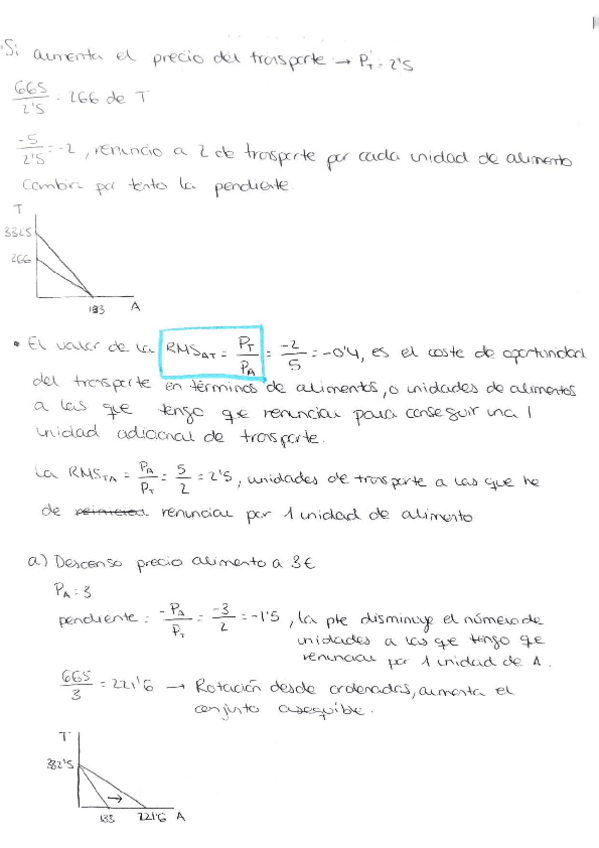 ·Si aumenta el precio del transporte → P'T = 2'5
665/2'5 = 266 de T
-5/2'5 = -2, renuncio a 2 de transporte por cada unidad de alimento
Cambia por tanto la pendiente.
T
332'5
266
133 A
• El valor de la RMS_AT = P_T/P_A = -2/5 = -0'4, es el coste de oportunidad
del transporte en términos de alimentos, o unidades de alimentos
a las que tengo que renunciar para conseguir una 1
unidad adicional de transporte.
La RMS_TA = P_A/P_T = 5/2 = 2'5, unidades de transporte a las que he
de renunciar por 1 unidad de alimento
a) Descenso precio alimento a 3€
P_A = 3
pendiente = -P_A/P_T = -3/2 = -1'5, la pte disminuye el número de
unidades a las que tengo que
renunciar por 1 unidad de A.
665/3 = 221'6 → Rotación desde ordenadas, aumenta el
conjunto asequible.
T
332'5
133 221'6 A